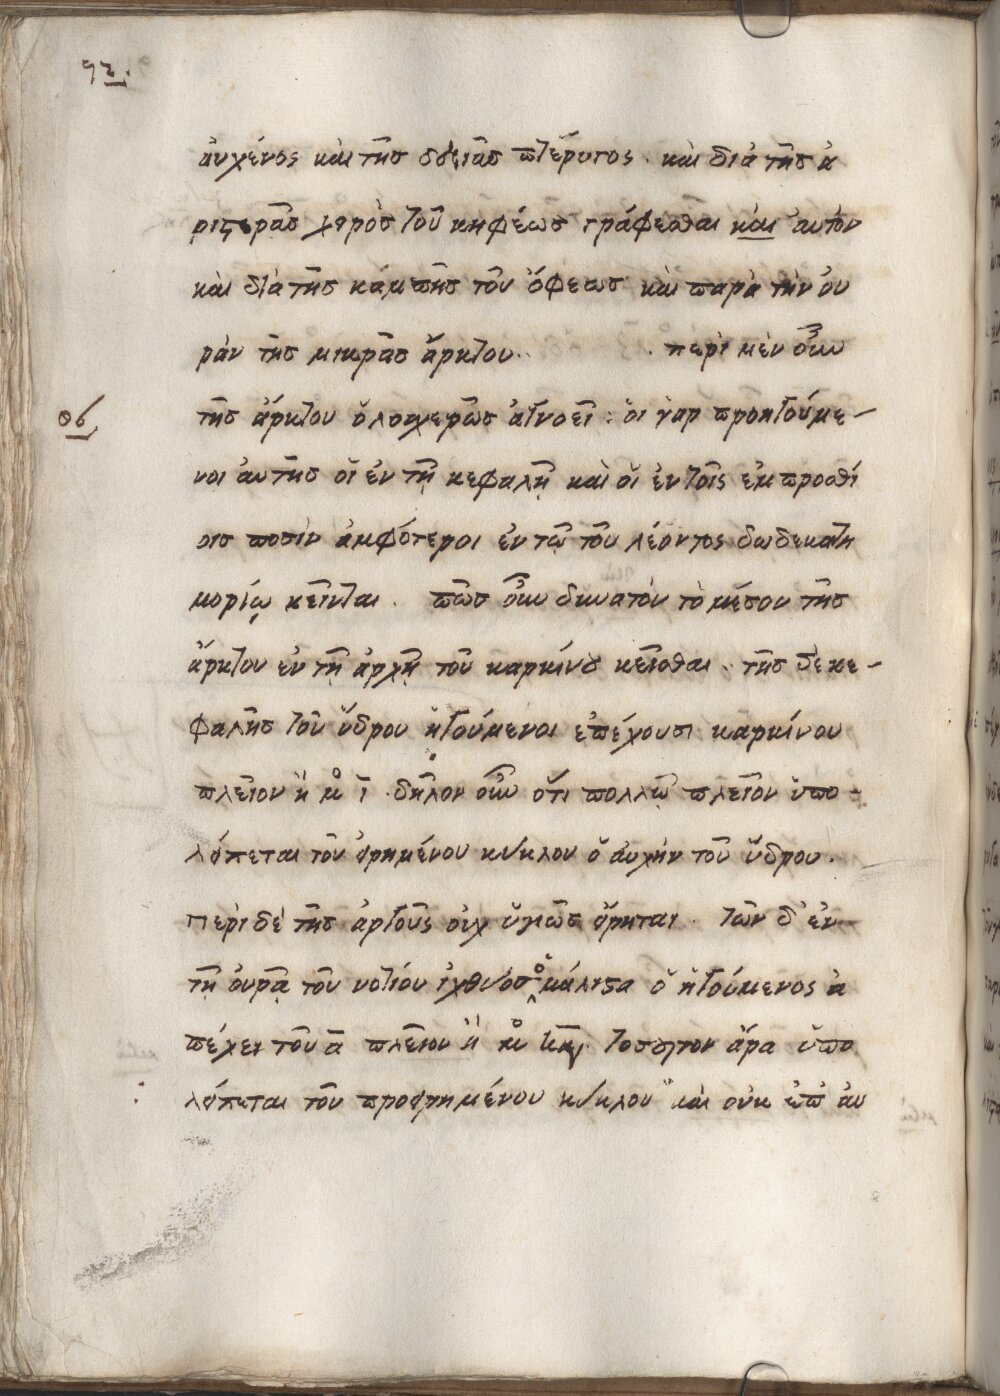 92.
αὐχένος καὶ τῆς δεξιᾶς πτέρυγος. καὶ διὰ τῆς ἀ
ριστερᾶς χειρὸς τοῦ κηφέως γράφεσθαι καὶ αὐτὸν
καὶ διὰ τῆς κάμπῆς τοῦ ὄφεως καὶ παρὰ τὴν οὐ
ρὰν τῆς μικρᾶς ἄρκτου. . περὶ μὲν οὖν
τῆς ἄρκτου ὁλοσχερῶς ἀγνοεῖ: οἱ γὰρ προηγούμε-
νοι αὐτῆς οἵ ἐν τῇ κεφαλῇ καὶ οἵ ἐν τοῖς ἐμπροσθί
οις ποσὶν ἀμφότεροι ἐν τῷ τοῦ λέοντος δωδεκατη
μορίῳ κεῖνται. πῶς οὖν δυνατὸν τὸ μέσον τῆς
ἄρκτου ἐν τῇ ἀρχῇ τοῦ καρκίνου κεῖσθαι. τῆς δὲ κε-
φαλῆς τοῦ ὕδρου ἡγούμενοι ἐπέχουσι καρκίνου
πλεῖον ἢ μο ῑ. δῆλον οὖν ὅτι πολλῷ πλεῖον ὑπο
λείπεται τοῦ εἰρημένου κύκλου ὁ αὐχὴν τοῦ ὕδρου.
περὶ δὲ τῆς ἀργοῦς οὐχ ὑγιῶς εἴρηται. τῶν δ' ἐν
τῇ οὐρᾷ τοῦ νοτίου ἰχθύος ὁ μάλιστα ὁ ἡγούμενος ἀ
πέχει τοῦ ᾱ πλεῖον ἢ μο τοσοῦτον ἄρα ὑπο
λείπεται τοῦ προειρημένου κύκλου καὶ οὐκ ἐπ' αὐ